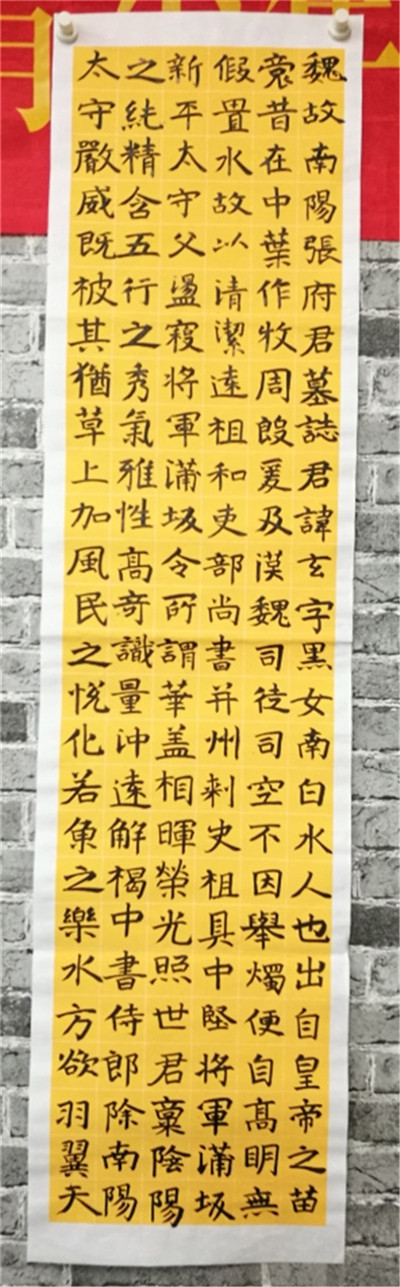 魏故南陽張府君墓誌君諱玄字黑女南白水人也出自皇帝之苗
裔昔在中葉作牧周殷爰及漢魏司徒司空不因舉燭便自高明無
假置水故以清潔遠祖和吏部尚書并州刺史祖具中堅將軍蒲坂
新平太守父盪寇將軍蒲坂令所謂華蓋相暉榮光照世君稟陰陽
之純精含五行之秀氣雅性高奇識量沖遠解褐中書侍郎除南陽
太守嚴威既被其猶草上加風民之悅化若魚之樂水方欲羽翼天